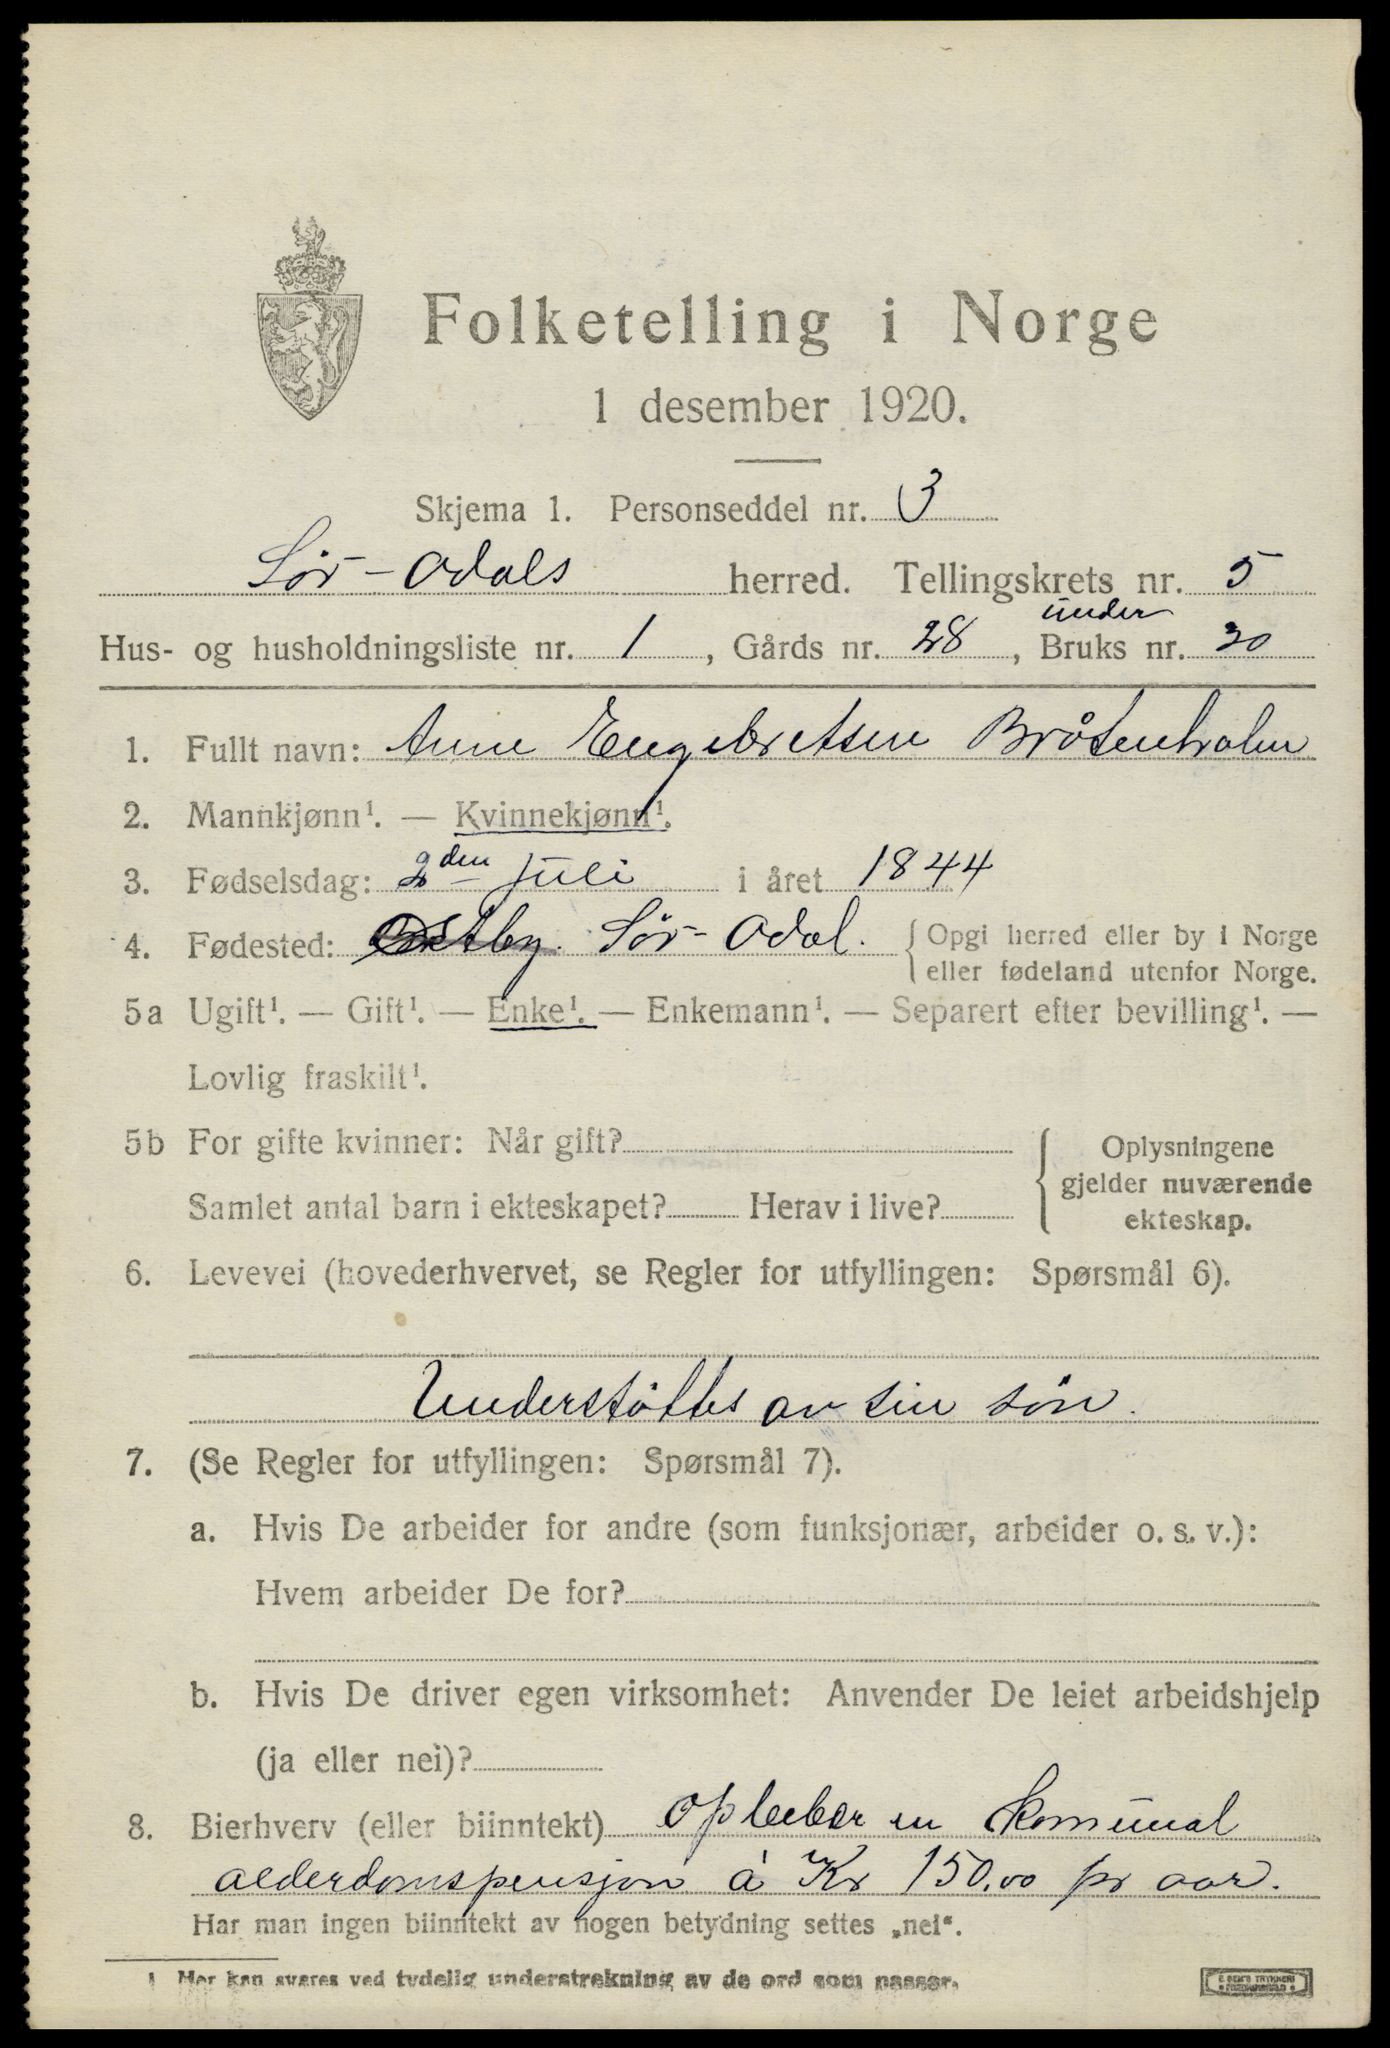 Folketelling i Norge
1 desember 1920.
Skjema 1. Personseddel nr. 3
Sör-Odals herred. Tellingskrets nr. 5
under
Hus- og husholdningsliste nr. 1, Gårds nr. 28, Bruks nr. 20
1. Fullt navn: Anne Engebretsen Bråtenholm
2. Mannkjønn¹. — Kvinnekjønn¹.
3. Fødselsdag: 2den Juli i året 1844
4. Fødested: Sör-Odal. { Opgi herred eller by i Norge
eller fødeland utenfor Norge.
5a Ugift¹. — Gift¹. — Enke¹. — Enkemann¹. — Separert efter bevilling¹. —
Lovlig fraskilt¹.
5b For gifte kvinner: Når gift? { Oplysningene
gjelder nuværende
Samlet antal barn i ekteskapet? Herav i live?
ekteskap.
6. Levevei (hovederhvervet, se Regler for utfyllingen: Spørsmål 6).
Understöttes av sin sön.
7. (Se Regler for utfyllingen: Spørsmål 7).
a. Hvis De arbeider for andre (som funksjonær, arbeider o. s. v.):
Hvem arbeider De for?
b. Hvis De driver egen virksomhet: Anvender De leiet arbeidshjelp
(ja eller nei)?
8. Bierhverv (eller biinntekt) Opbeber en komunal
alderdomspensjon á Kr 150,00 pr aar.
Har man ingen biinntekt av nogen betydning settes „nei“.
1 Her kan svares ved tydelig understrekning av de ord som passer.